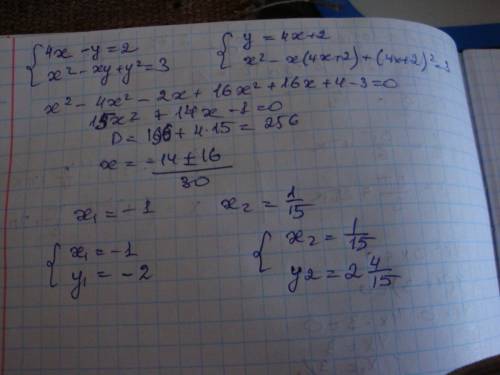 { 4x - y = 2
x² - xy + y² = 3
{ y = 4x + 2
x² - x(4x+2) + (4x+2)² = 3
x² - 4x² - 2x + 16x² + 16x + 4 - 3 = 0
15x² + 14x - 1 = 0
D = 196 + 4·15 = 256
x = -14 ± 16 / 30
x₁ = -1
x₂ = 1/15
{ x₁ = -1
y₁ = -2
{ x₂ = 1/15
y2 = 2 4/15